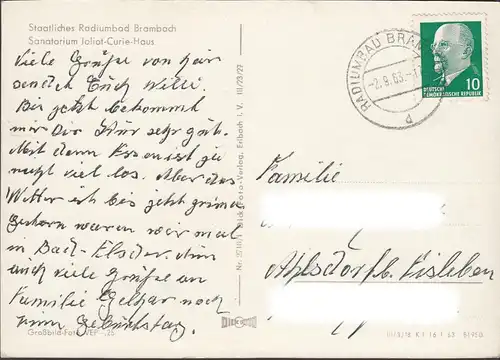 Staatliches Radiumbad Brambach
Sanatorium Joliot-Curie-Haus
Viele Grüße von hier
sendet Euch Willi.
Bis jetzt bekommt
mir Die Kur sehr gut.
Mit dem Essen ist ja
nicht viel los. Aber das
Wetter ist bis jetzt prima
Gestern waren wir mal
in Bad-Elster. Nun
auch viele Grüße an
Familie noch
zum Geburtstag.
Großbild-Foto VEP -,25
III/23/22
Dick-Foto-Verlag, Erlbach i. V.
RADIUMBAD BRAM
-2.9.63.-1
a
10
DEUTSCHE
DEMOKRATISCHE REPUBLIK
Familie
Ahlsdorf b. Eisleben
III/8/16 K 1 16 1 63